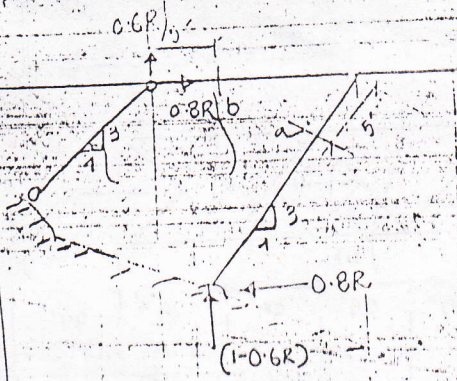 0.6R
0.8R
b
3
1
a
5
3
1
0.8R
(1-0.6R)